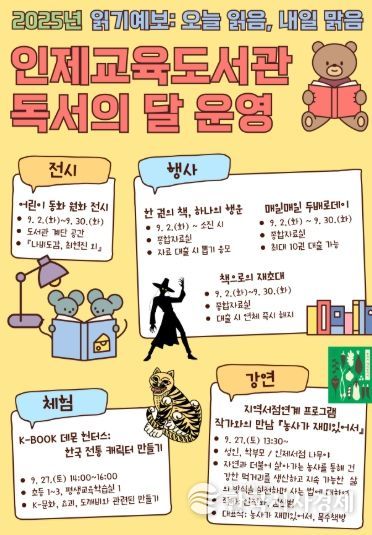 2025년 읽기예보: 오늘 읽음, 내일 맑음
인제교육도서관
독서의 달 운영
전시
어린이 동화 원화 전시
9. 2.(화)~9. 30.(화)
도서관 계단 공간
『나비도감, 최현진 외』
행사
한 권의 책, 하나의 행운
9. 2.(화) ~ 소진 시
종합자료실
자료 대출 시 뽑기 응모
매일매일 두배로데이
9. 2.(화) ~ 9. 30.(화)
종합자료실
최대 10권 대출 가능
책으로의 재초대
9. 2.(화)~9. 30.(화)
종합자료실
대출 시 연체 즉시 해지
체험
K-BOOK 데몬 헌터스:
한국 전통 캐릭터 만들기
9. 27.(토) 14:00~16:00
초등 1~3, 평생교육학습실 1
K-문화, 호랑이, 도깨비와 관련된 만들기
강연
지역서점연계 프로그램
작가와의 만남 『농사가 재미있어서』
9. 27.(토) 13:30~
성인, 학부모 / 인제서점 나무야
자연과 더불어 살아가는 농사를 통해 건
강한 먹거리를 생산하고 지속 가능한 삶
의 방식을 실천하며 사는 법에 대하여
대표작: 농사가 재미있어서, 목수책방